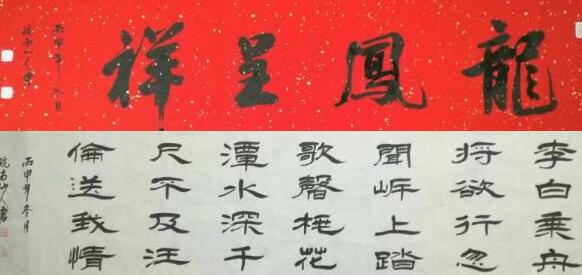 龍鳳呈祥
丙申年冬月
李白乘舟
將欲行忽
聞岸上踏
歌聲桃花
潭水深千
尺不及汪
倫送我情
丙申年冬月